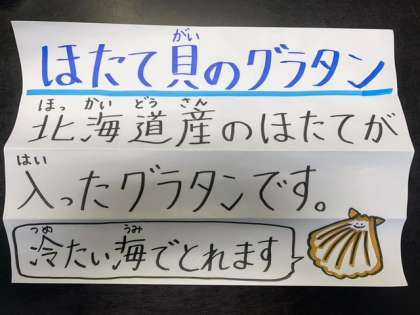 がい
ほたて貝のグラタン
ほっ かい どう さん
北海道産のほたてが
はい
入ったグラタンです。
つめ うみ
冷たい海でとれます